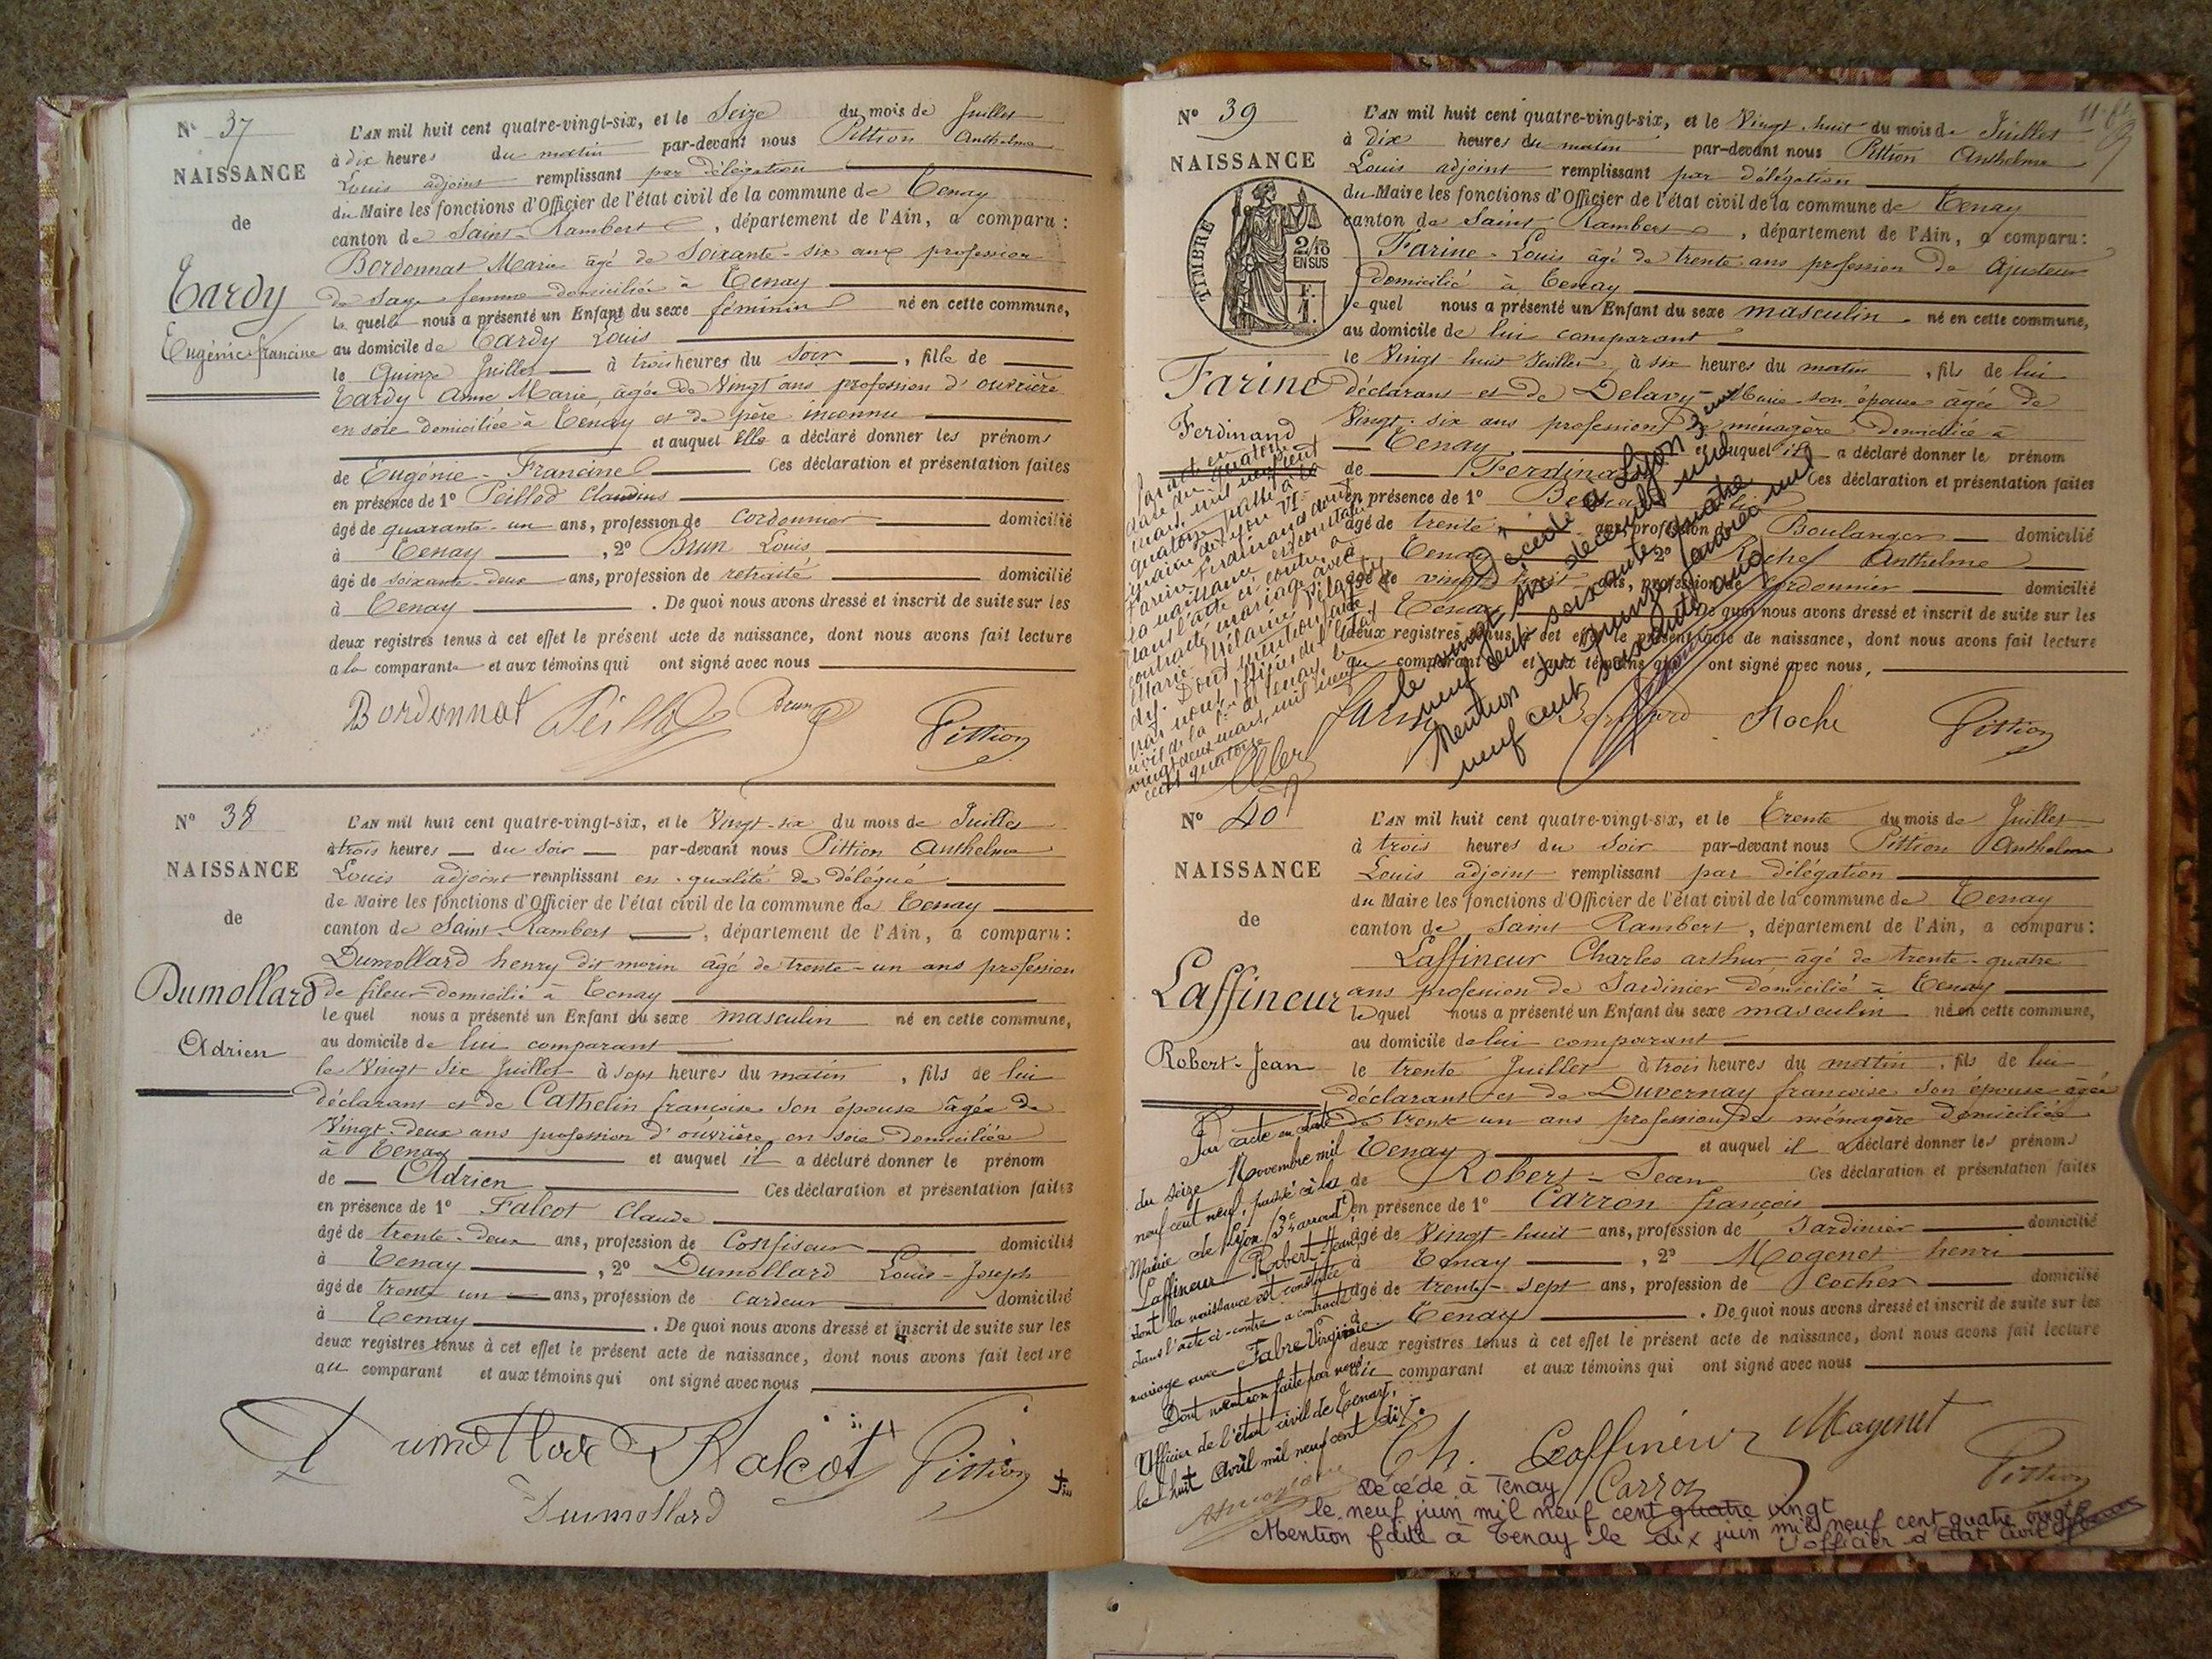 N° 37
NAISSANCE
de
Tardy
Eugénie francine
L'AN mil huit cent quatre-vingt-six, et le Seize du mois de Juillet
à dix heures du matin par-devant nous Pittion Anthelme
Louis adjoint remplissant par délégation
du Maire les fonctions d'Officier de l'état civil de la commune de Tenay
canton de Saint-Rambert, département de l'Ain, a comparu :
Bordonnat Marie âgé de Soixante-six ans profession
de Sage femme domiciliée à Tenay
la quelle nous a présenté un Enfant du sexe féminin né en cette commune,
au domicile de Tardy Louis
le Quinze Juillet à trois heures du Soir, fille de
Tardy Anne Marie, âgée de Vingt ans profession d'ouvrière
en soie domiciliée à Tenay et de père inconnu
et auquel Elle a déclaré donner les prénoms
de Eugénie-Francine Ces déclaration et présentation faites
en présence de 1° Peillod Claudius
âgé de quarante-un ans, profession de Cordonnier domicilié
à Tenay, 2° Brun Louis
âgé de soixante-deux ans, profession de retraité domicilié
à Tenay. De quoi nous avons dressé et inscrit de suite sur les
deux registres tenus à cet effet le présent acte de naissance, dont nous avons fait lecture
a la comparante et aux témoins qui ont signé avec nous
Bordonnat Peillod Brun Pittion
N° 38
NAISSANCE
de
Dumollard
Adrien
L'AN mil huit cent quatre-vingt-six, et le Vingt-six du mois de Juillet
à trois heures du Soir par-devant nous Pittion Anthelme
Louis adjoint remplissant en qualité de délégué
de Maire les fonctions d'Officier de l'état civil de la commune de Tenay
canton de Saint-Rambert, département de l'Ain, a comparu :
Dumollard henry dit morin âgé de trente-un ans profession
de fileur domicilié à Tenay
le quel nous a présenté un Enfant du sexe masculin né en cette commune,
au domicile de lui comparant
le Vingt Six Juillet à sept heures du matin, fils de lui
déclarant et de Cathelin françoise Son épouse âgée de
Vingt-deux ans profession d'ouvrière en soie domiciliée
à Tenay et auquel il a déclaré donner le prénom
de Adrien Ces déclaration et présentation faites
en présence de 1° Falcot Claude
âgé de trente-deux ans, profession de Confiseur domicilié
à Tenay, 2° Dumollard Louis-Joseph
âgé de trente un ans, profession de Cardeur domicilié
à Tenay. De quoi nous avons dressé et inscrit de suite sur les
deux registres tenus à cet effet le présent acte de naissance, dont nous avons fait lecture
au comparant et aux témoins qui ont signé avec nous
Dumollard Falcot Pittion
Dumollard
N° 39
NAISSANCE
TIMBRE
2/10
EN SUS
F.
1.
Farine
Ferdinand
L'AN mil huit cent quatre-vingt-six, et le Vingt-huit du mois de Juillet
à dix heures du matin par-devant nous Pittion Anthelme
Louis adjoint remplissant par délégation
du Maire les fonctions d'Officier de l'état civil de la commune de Tenay
canton de Saint Rambert, département de l'Ain, a comparu :
Farine Louis âgé de trente ans profession de Ajusteur
domicilié à Tenay
le quel nous a présenté un Enfant du sexe masculin né en cette commune,
au domicile de lui comparant
le Vingt-huit Juillet à six heures du matin, fils de lui
déclarant et de Delavy Marie son épouse âgée de
Vingt-six ans profession de ménagère domiciliée à
Tenay et auquel il a déclaré donner le prénom
de Ferdinand Ces déclaration et présentation faites
en présence de 1°
âgé de trente ans, profession de Boulanger domicilié
à Tenay 2° Roche Anthelme
âgé de vingt huit ans, profession de Cordonnier domicilié
à Tenay De quoi nous avons dressé et inscrit de suite sur les
deux registres tenus à cet effet le présent acte de naissance, dont nous avons fait lecture
au comparant et aux témoins qui ont signé avec nous,
Roche Pittion
Décédé à Lyon 3eme
le vingt six décembre mil
neuf cent soixante quatre
Mention du quinze janvier mil
neuf cent soixante cinq
Par acte en
date du quatorze
mars mil neuf cent
quatorze, passé à la
mairie de Lyon VI
Farine Ferdinand dont
la naissance est constatée
dans l'acte ci-contre a
contracté mariage avec
Marie Mélanie
Dont mention faite
par nous Officier de l'état
civil de la Cne de Tenay, le
vingt deux mars, mil neuf
cent quatorze
N° 40
NAISSANCE
de
Laffineur
Robert-Jean
L'AN mil huit cent quatre-vingt-six, et le Trente du mois de Juillet
à trois heures du Soir par-devant nous Pittion Anthelme
Louis adjoint remplissant par délégation
du Maire les fonctions d'Officier de l'état civil de la commune de Tenay
canton de Saint Rambert, département de l'Ain, a comparu :
Laffineur Charles arthur âgé de trente-quatre
ans profession de Jardinier domicilié à Tenay
le quel nous a présenté un Enfant du sexe masculin né en cette commune,
au domicile de lui comparant
le trente Juillet à trois heures du matin, fils de lui
déclarant et de Duvernay françoise Son épouse âgée
de trente un ans profession de ménagère domiciliée
Tenay et auquel il a déclaré donner les prénoms
de Robert-Jean Ces déclaration et présentation faites
en présence de 1° Carron françois
âgé de Vingt-huit ans, profession de Jardinier domicilié
à Tenay, 2° Mogenet henri
âgé de trente-sept ans, profession de Cocher domicilié
à Tenay. De quoi nous avons dressé et inscrit de suite sur les
deux registres tenus à cet effet le présent acte de naissance, dont nous avons fait lecture
au comparant et aux témoins qui ont signé avec nous
Par acte en date
du seize Novembre mil
neuf cent neuf, passé à la
Mairie de Lyon (3e arrondt)
Laffineur Robert-Jean
dont la naissance est constatée
dans l'acte ci-contre a contracté
mariage avec Fabre Virginie
Dont mention faite par nous
Officier de l'état civil de Tenay,
le huit Avril mil neuf cent dix.
Ch. Laffineur Mogenet
Carron Pittion
Décédé à Tenay
le neuf juin mil neuf cent quatre vingt
Mention faite à Tenay le dix juin mil neuf cent quatre vingt
L'officier d'Etat Civil